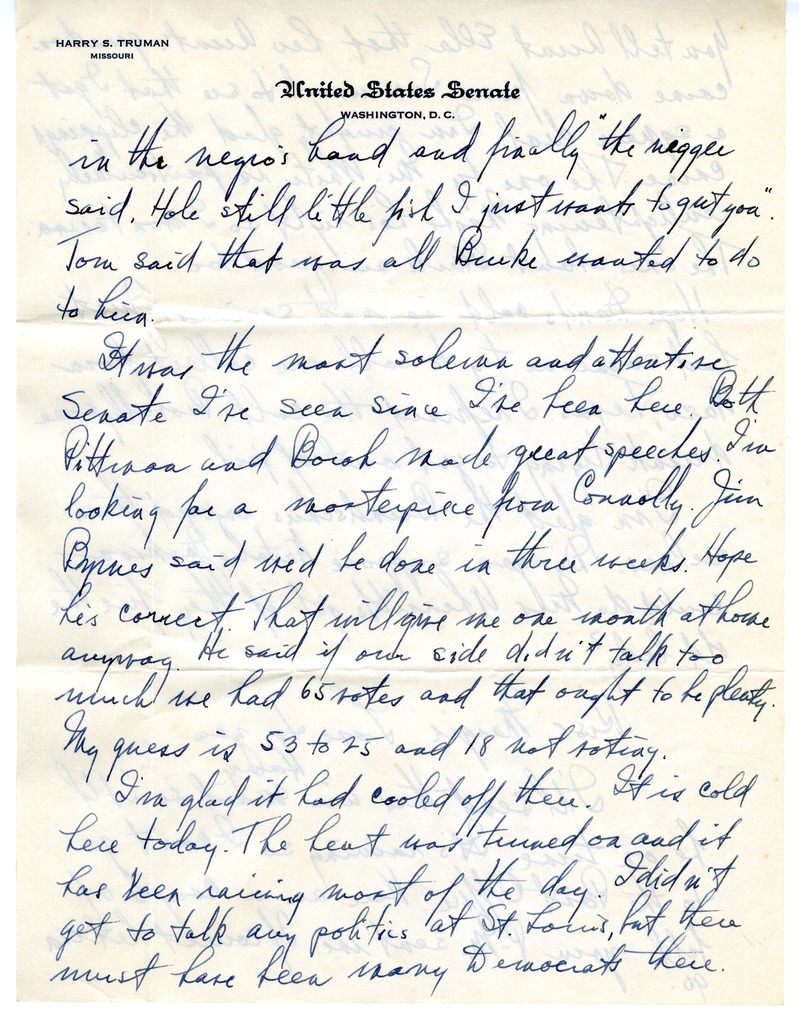 HARRY S. TRUMAN
MISSOURI
United States Senate
WASHINGTON, D. C.
in the negro's hand and finally "the nigger
said, Hole still little fish I just wants to gut you".
Tom said that was all Burke wanted to do
to him.
It was the most solemn and attentive
Senate I've seen since I've been here. Both
Pittman and Borah made great speeches. I'm
looking for a masterpiece from Connolly. Jim
Byrnes said we'd be done in three weeks. Hope
he's correct. That will give me one month at home
anyway. He said if our side didn't talk too
much we had 65 votes and that ought to be plenty.
My guess is 53 to 25 and 18 not voting.
I'm glad it had cooled off there. It is cold
here today. The heat was turned on and it
has been raining most of the day. I didn't
get to talk any politics at St. Louis, but there
must have been many Democrats there.